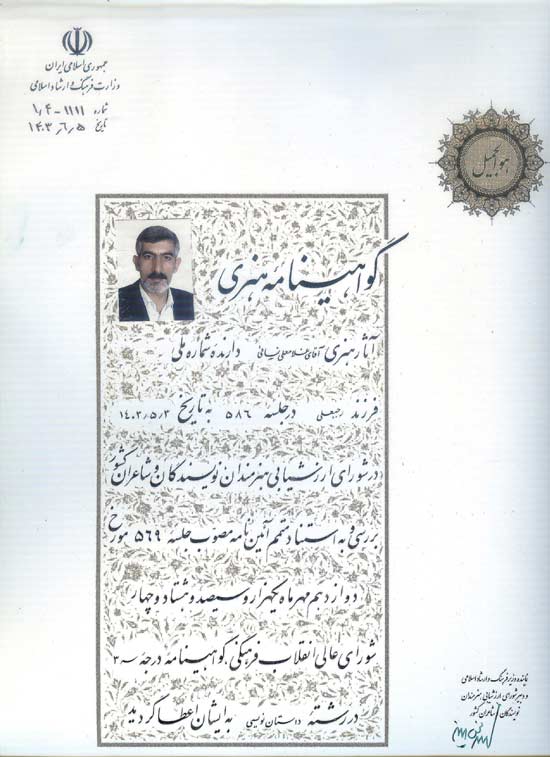 جمهوری اسلامی ایران
وزارت فرهنگ و ارشاد اسلامی
شماره ۱٫۴-۱۱۱۱
تاریخ ۱۴۰۳٫۶٫۵
هو الجمیل
گواهینامه هنری
آثار هنری آقای غلامعلی دارنده شماره ملی
فرزند رجبعلی در جلسه ۵۸۶ به تاریخ ۱۴۰۳٫۵٫۳
در شورای ارزشیابی هنرمندان نویسندگان و شاعران کشور
بررسی و به استناد متمم آئین نامه مصوب جلسه ۵۶۹ مورخ
دوازدهم مهرماه یکهزار و سیصد و هشتاد و چهار
شورای عالی انقلاب فرهنگی گواهینامه درجه ۳
در رشته داستان نویسی به ایشان اعطا گردید
نماینده وزیر فرهنگ و ارشاد اسلامی
و دبیر شورای ارزشیابی هنرمندان
نویسندگان و شاعران کشور